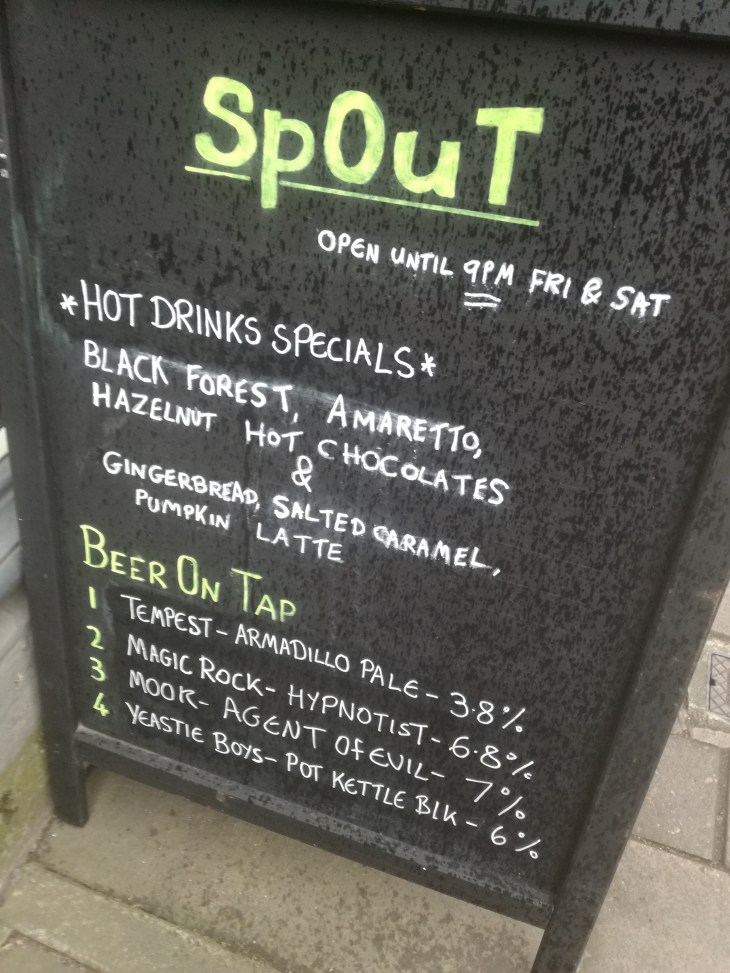 SpOuT
OPEN UNTIL 9PM FRI & SAT
*HOT DRINKS SPECIALS*
BLACK FOREST, AMARETTO,
HAZELNUT HOT CHOCOLATES
&
GINGERBREAD, SALTED CARAMEL,
PUMPKIN LATTE
BEER ON TAP
1 TEMPEST - ARMADILLO PALE - 3.8%
2 MAGIC ROCK - HYPNOTIST - 6.8%
3 MOOR - AGENT Of EVIL - 7%
4 YEASTIE BOYS - POT KETTLE BLK - 6%